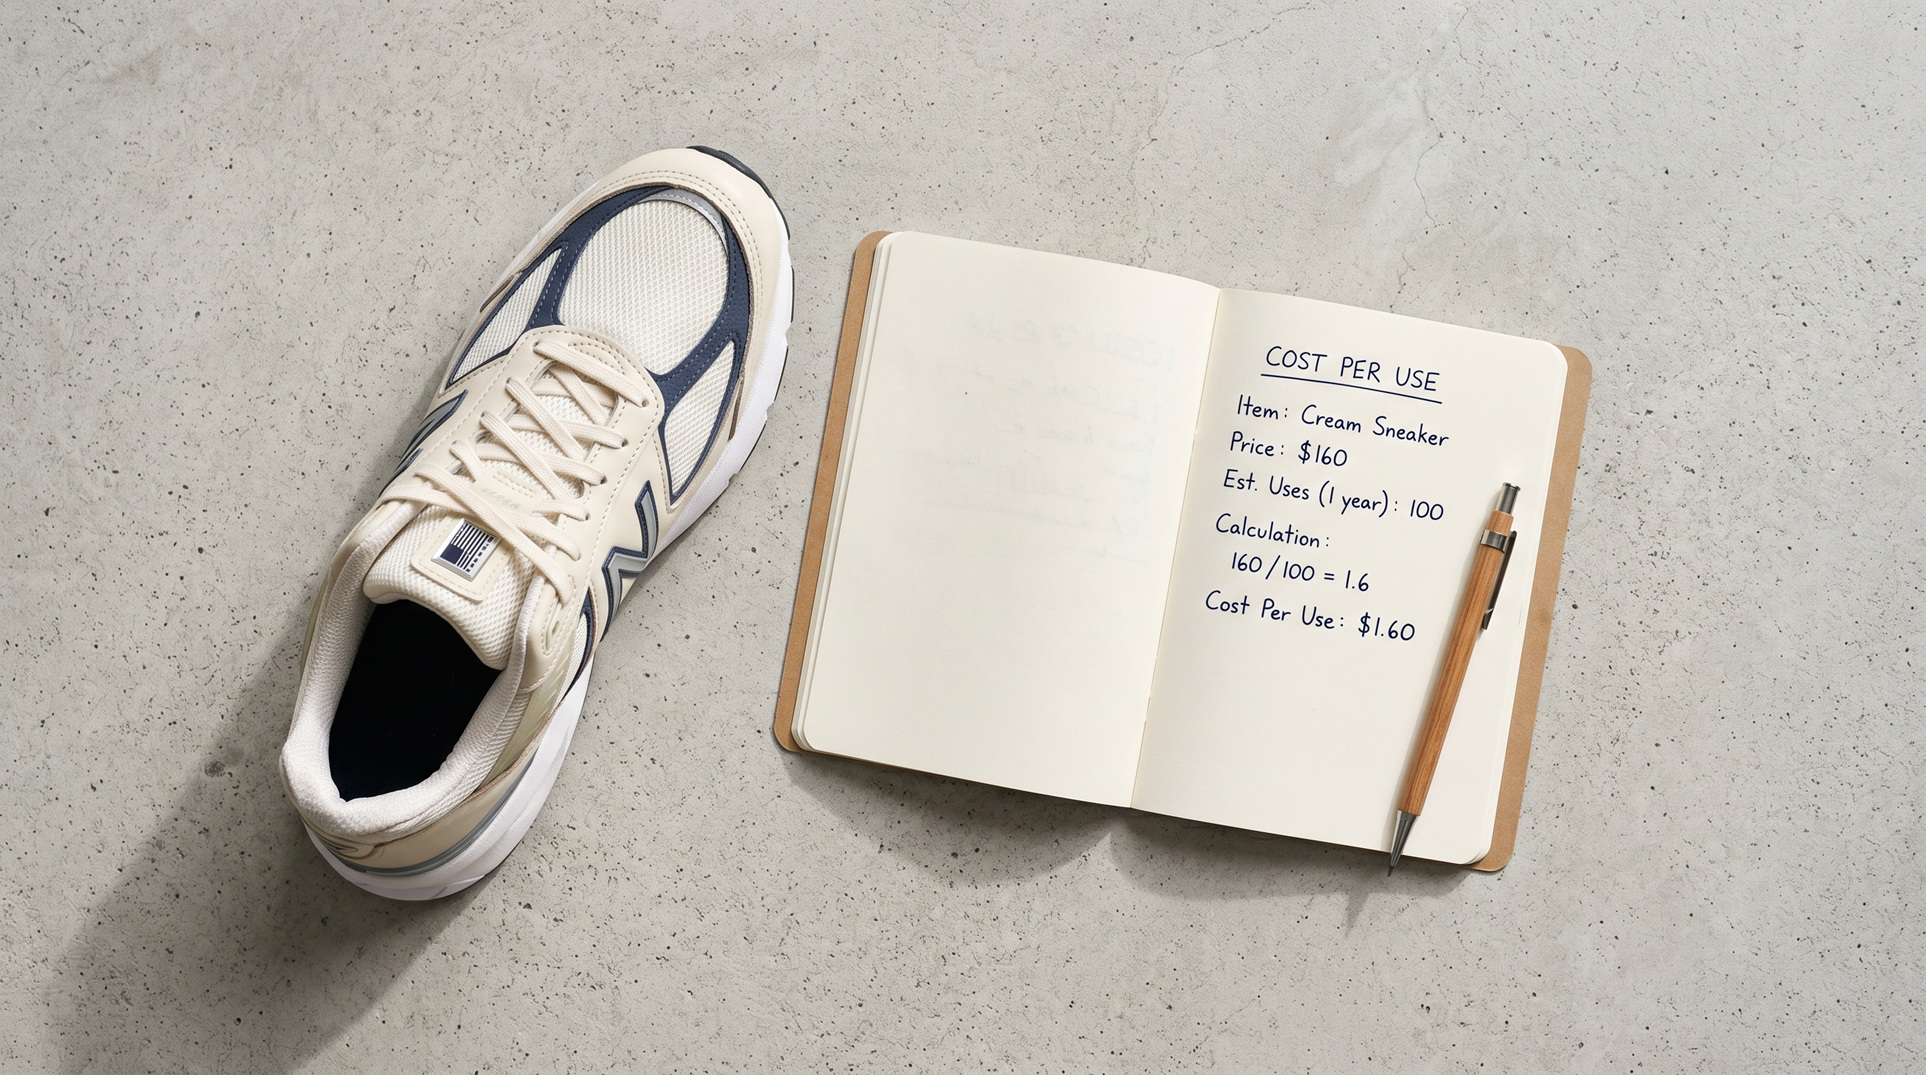 COST PER USE
Item: Cream Sneaker
Price: $160
Est. Uses (1 year): 100
Calculation:
160/100 = 1.6
Cost Per Use: $1.60